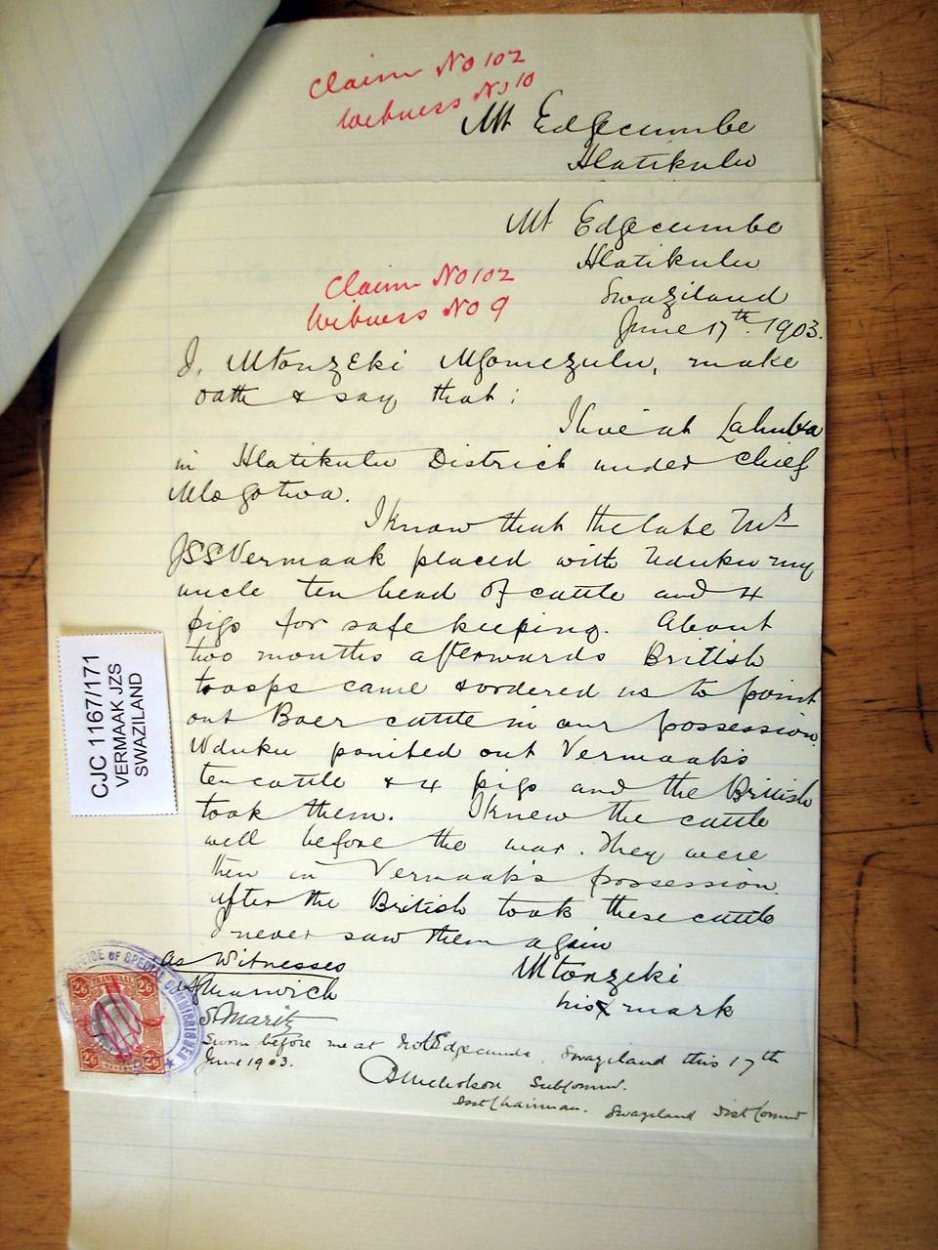 Claim No 102
Witness No 10
Mt Edgecumbe
Hlatikulu
Mt Edgecumbe
Hlatikulu
Swaziland
Claim No 102
Witness No 9
June 17th. 1903.
I, Mtonzeki Mgomezulu, make
oath & say that:
I live at
in Hlatikulu District under Chief
Mlogotwa.
I know that the late Mr
JSSVermaak placed with Uduku my
uncle ten head of cattle and 4
pigs for safe keeping. About
two months afterwards British
troops came & ordered us to point
out Boer cattle in our possession.
Uduku ponited out Vermaak's
ten cattle & 4 pigs and the British
took them. I knew the cattle
well before the war. They were
then in Vermaak's possession.
After the British took these cattle
I never saw them again
As Witnesses
Mtonzeki
his X mark
Marwich
S Maritz
Sworn before me at Mt Edgecumbe, Swaziland this 17th
June 1903.
Nicholson Subcommr.
Asst Chairman. Swaziland Dist Commr
CJC 1167/171
VERMAAK JZS
SWAZILAND
OFFICE OF SPECIAL COMMISSIONER
TRANSVAAL
2/6 2/6
2/6 2/6